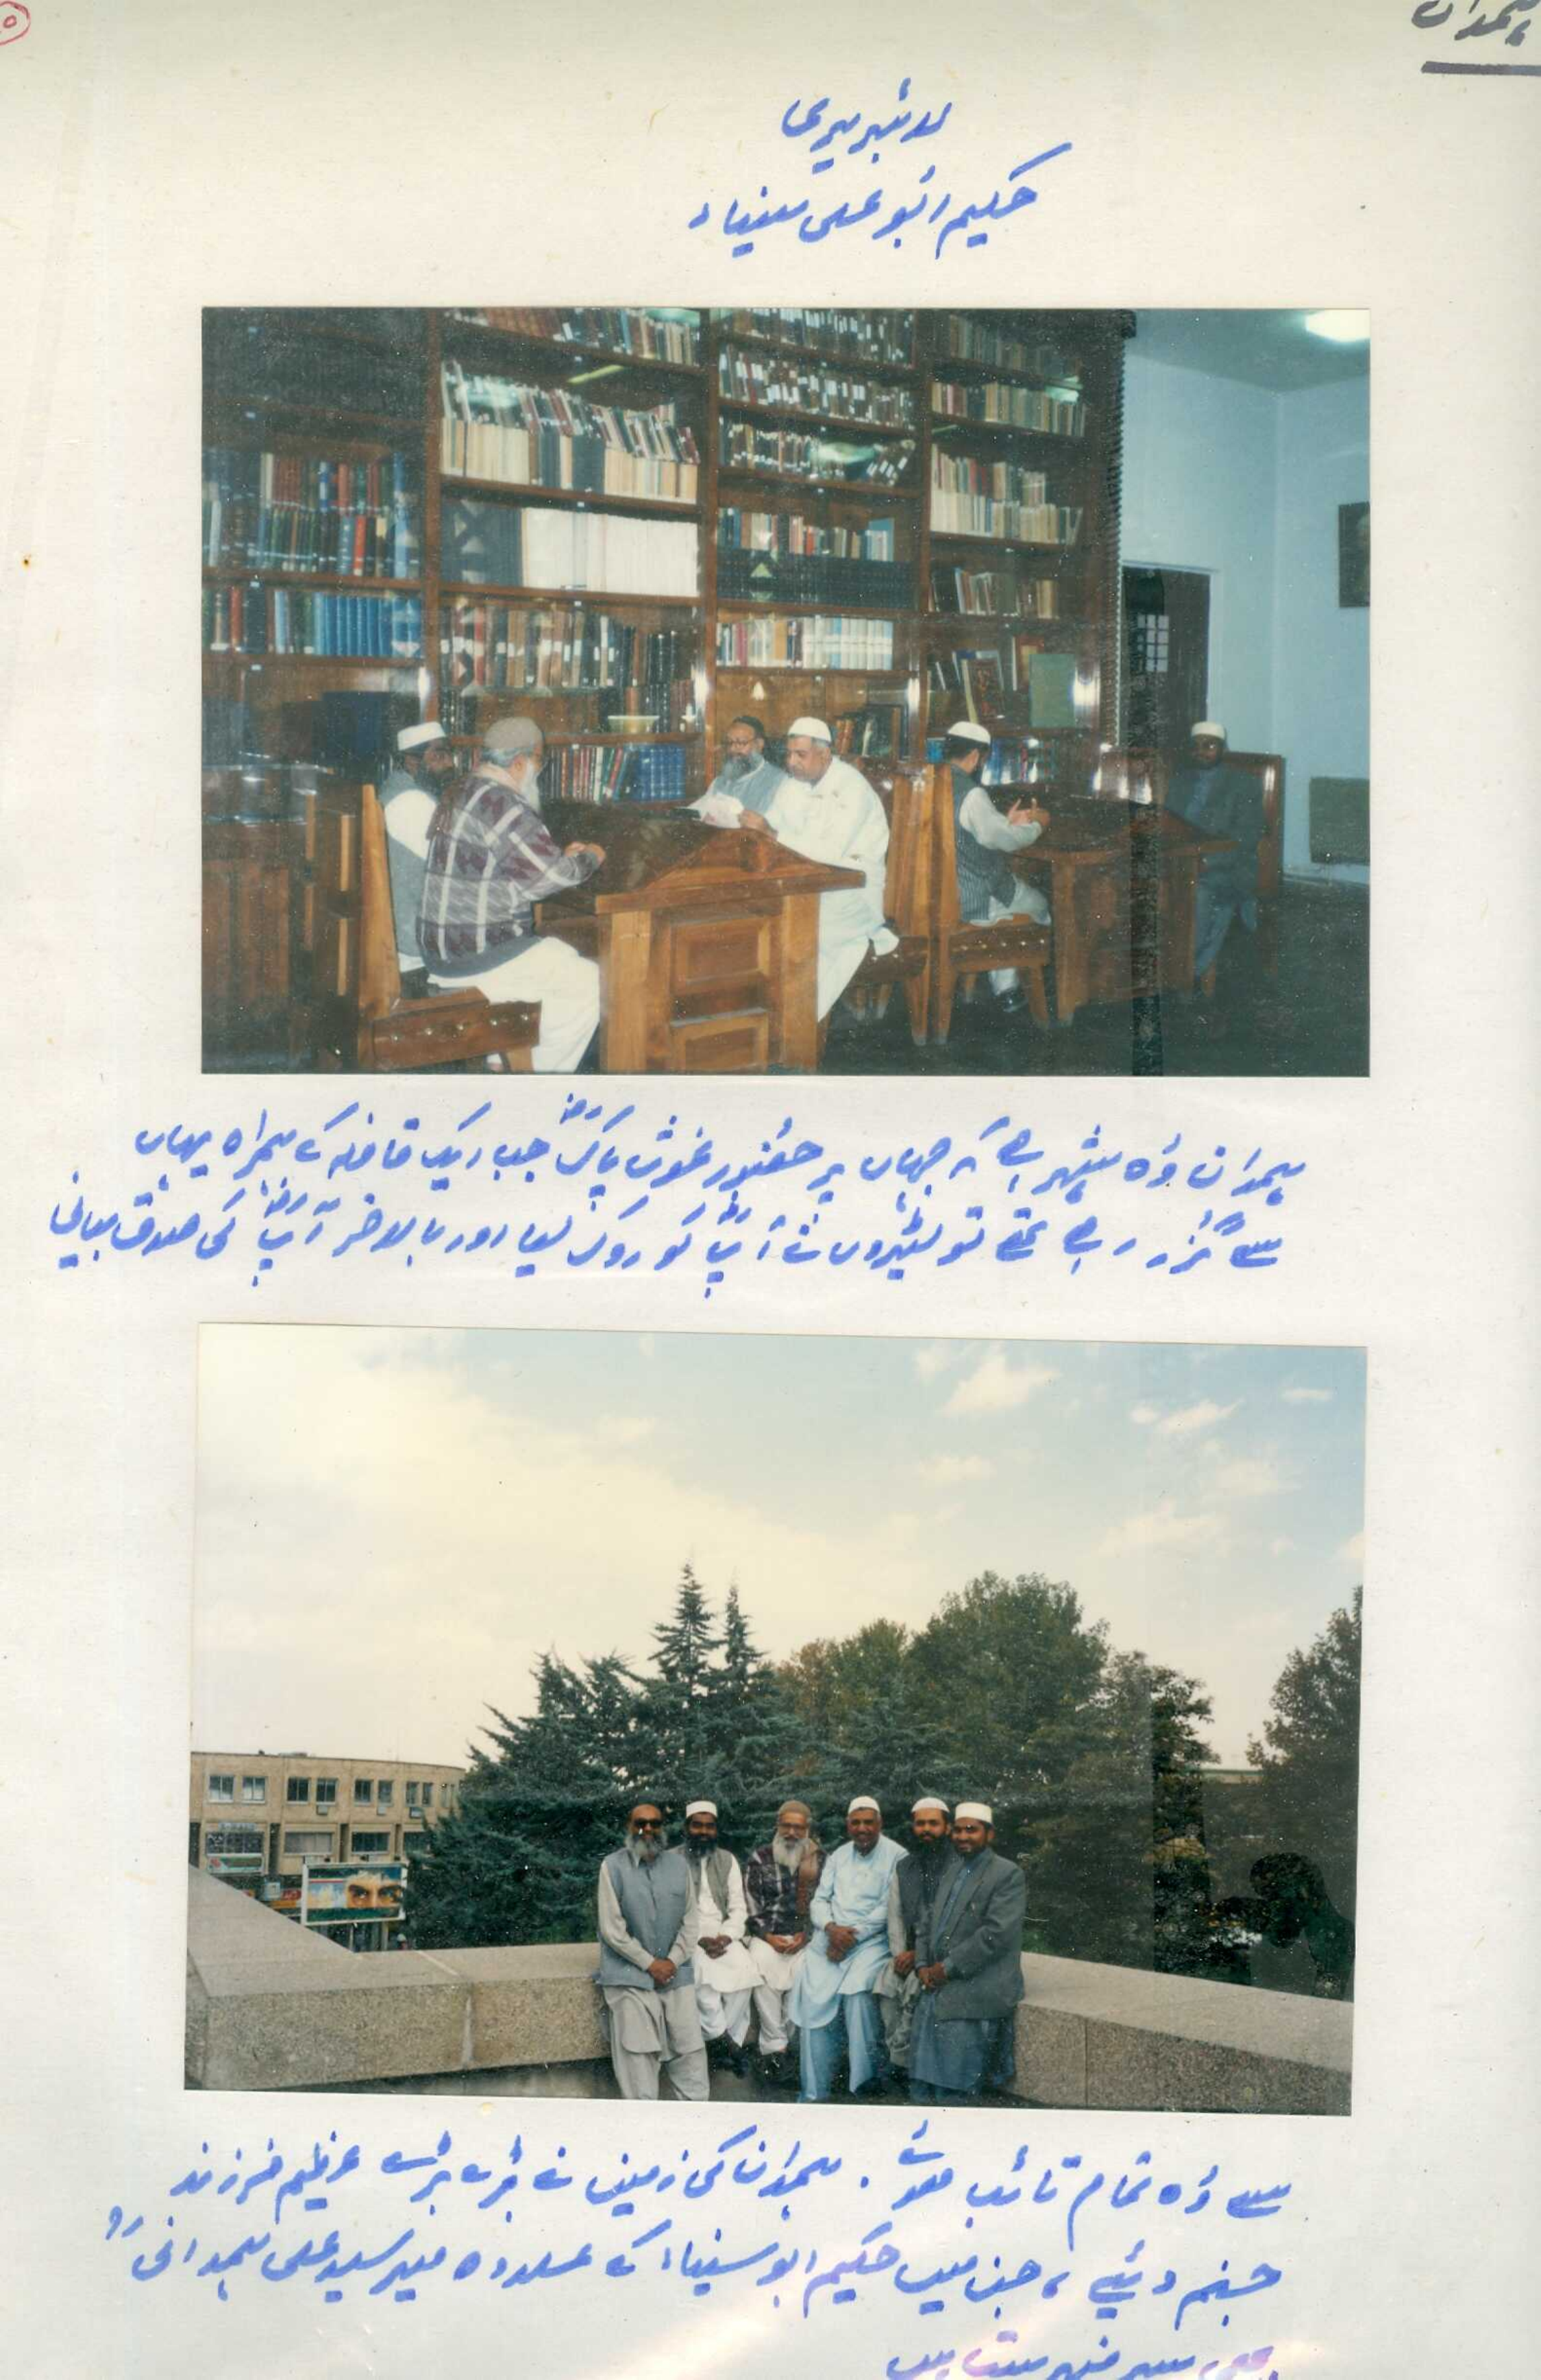 ہمدان
لائبریری
حکیم ابو علی سیناء
ہمدان وہ شہر ہے کہ جہاں پر حضور غوث پاکؓ جب ایک قافلہ کے ہمراہ یہاں
سے گزر رہے تھے تو لٹیروں نے آپؓ کو روک لیا اور بالاخر آپؓ کی صداقت بیانی
سے وہ تمام تائب ہوئے۔ ہمدان کی زمین نے بڑے بڑے عظیم فرزند
جنم دئیے، جن میں حکیم ابو سیناء کے علاوہ میر سید علی ہمدانیؒ
سر فہرست ہیں